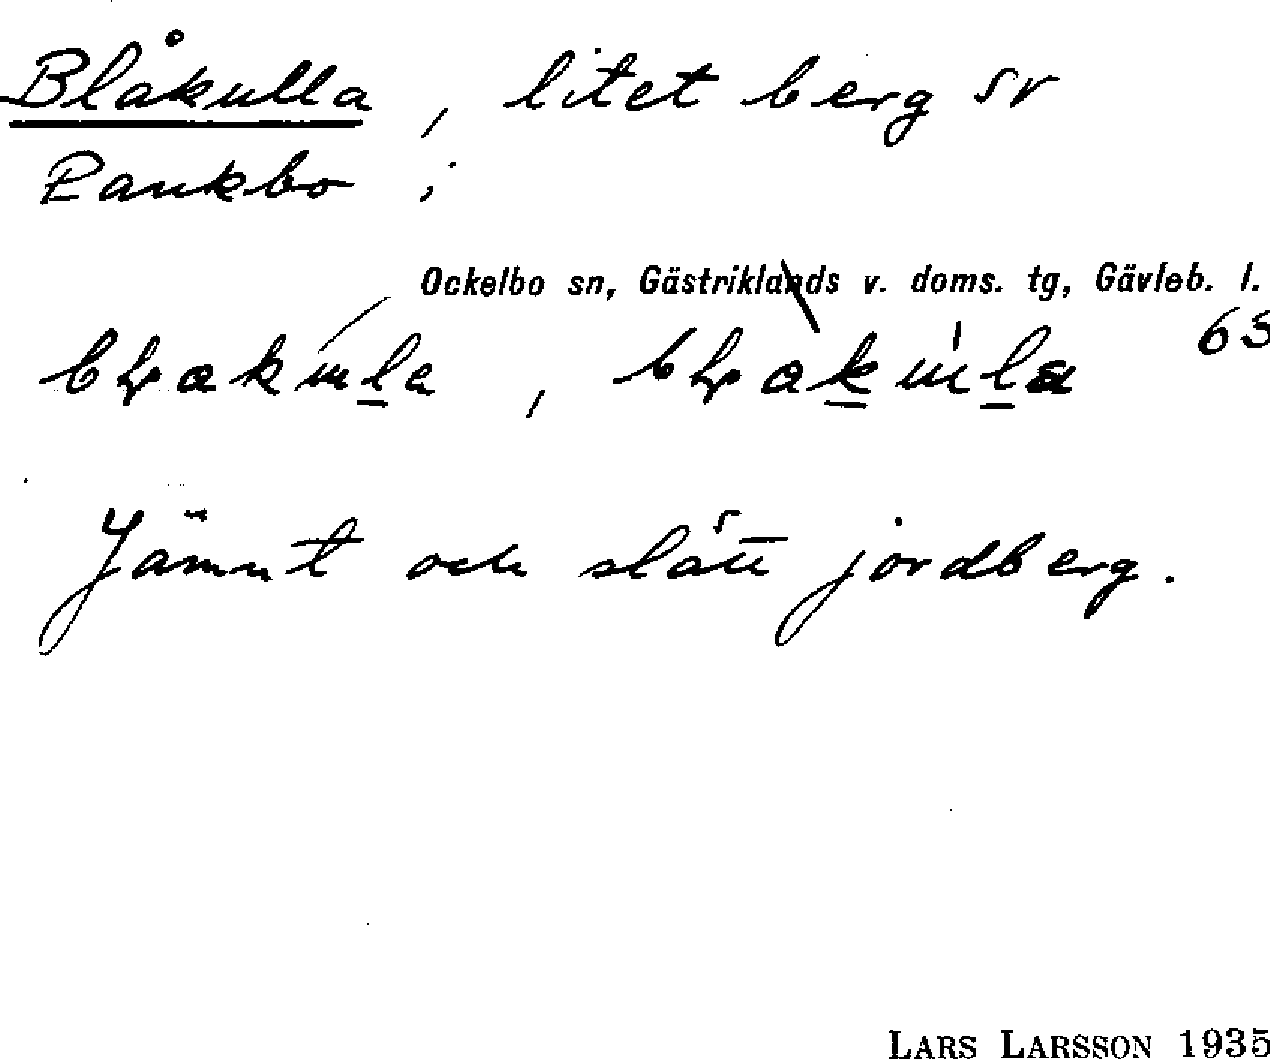 Blåkulla, litet berg sv
Rankbo;
Ockelbo sn, Gästriklands v. doms. tg, Gävleb. l.
63
Jämnt och slätt jordberg.
LARS LARSSON 1935